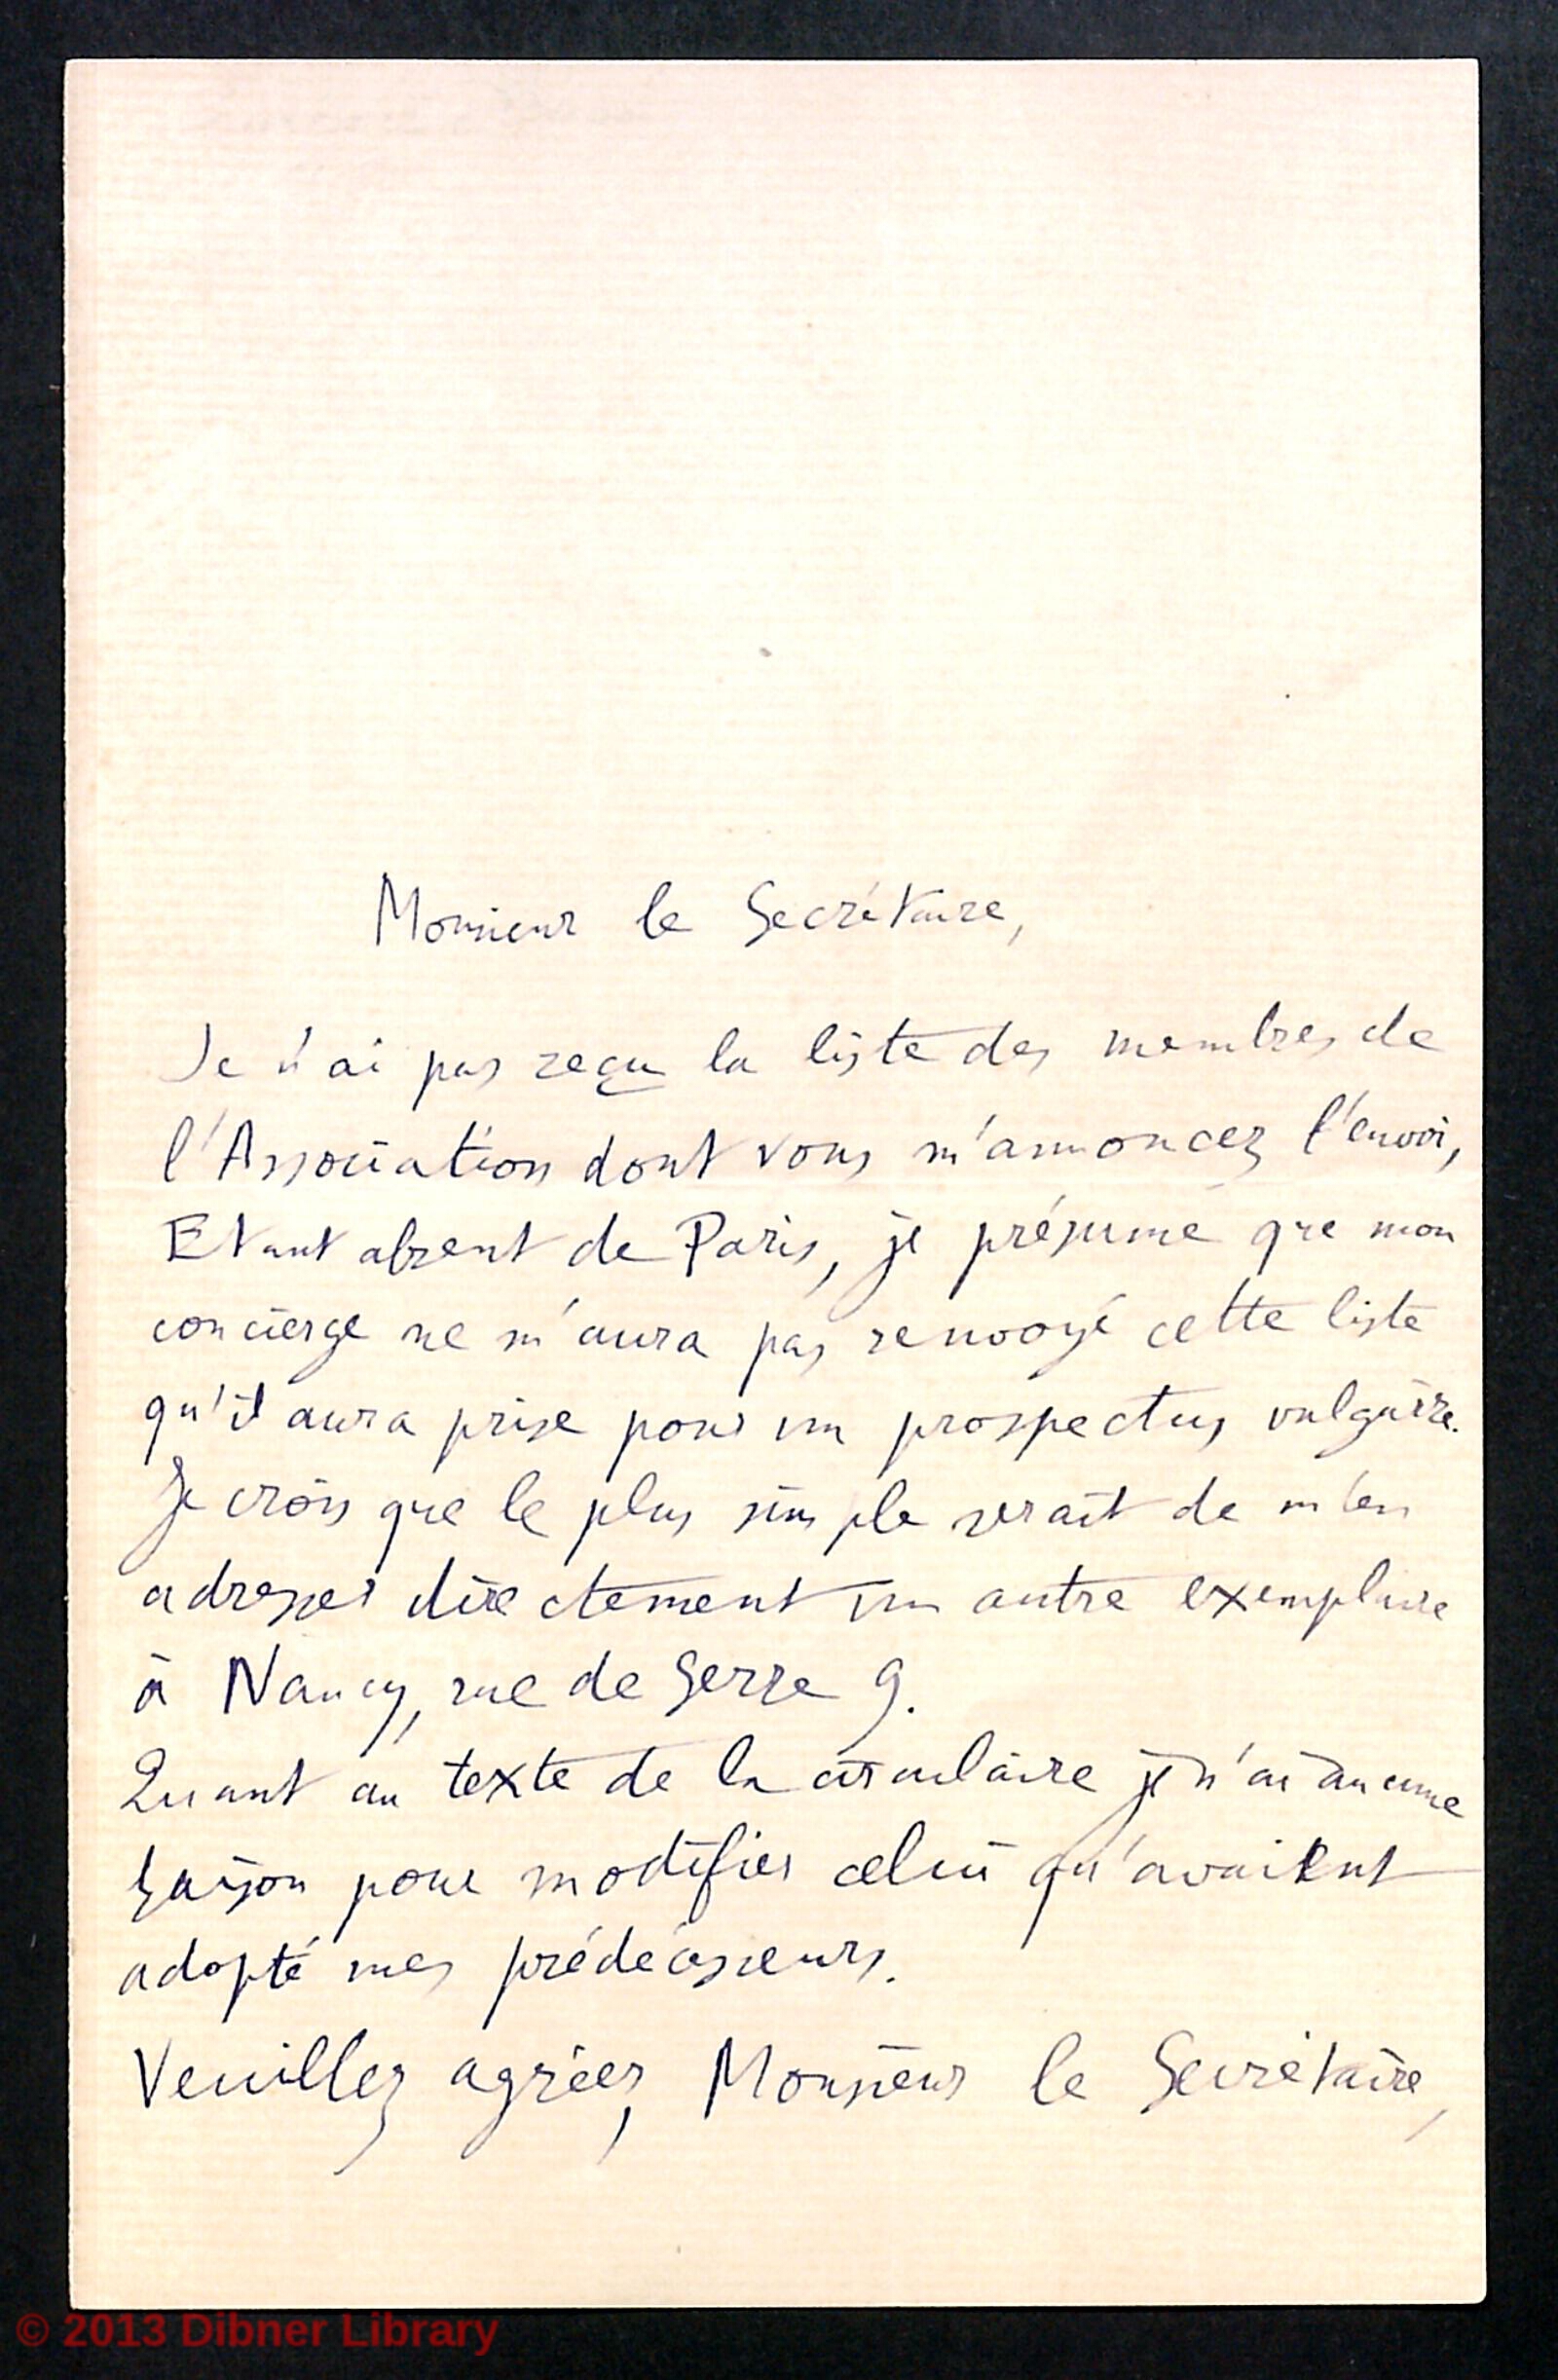 Monsieur le Secrétaire,
Je n'ai pas reçu la liste des membres de
l'Association dont vous m'annoncez l'envoi,
Etant absent de Paris, je présume que mon
concierge ne m'aura pas renvoyé cette liste
qu'il aura prise pour un prospectus vulgaire.
Je crois que le plus simple serait de m'en
adresser directement un autre exemplaire
à Nancy, rue de Serre 9.
Quant au texte de la circulaire je n'ai aucune
raison pour modifier celui qu'avaient
adopté mes prédécesseurs.
Veuillez agréer, Monsieur le Secrétaire,
© 2013 Dibner Library